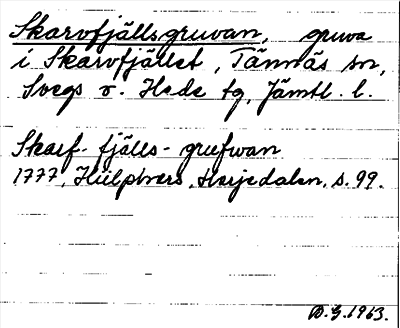 Skarvfjällsgruvan, gruva
i Skarvfjället, Tännäs sn,
Svegs o. Hede tg, Jämtl. l.
Skarf-fjälls-grufwan
1777, Hülphers, Herjedalen, s. 99.
1963.